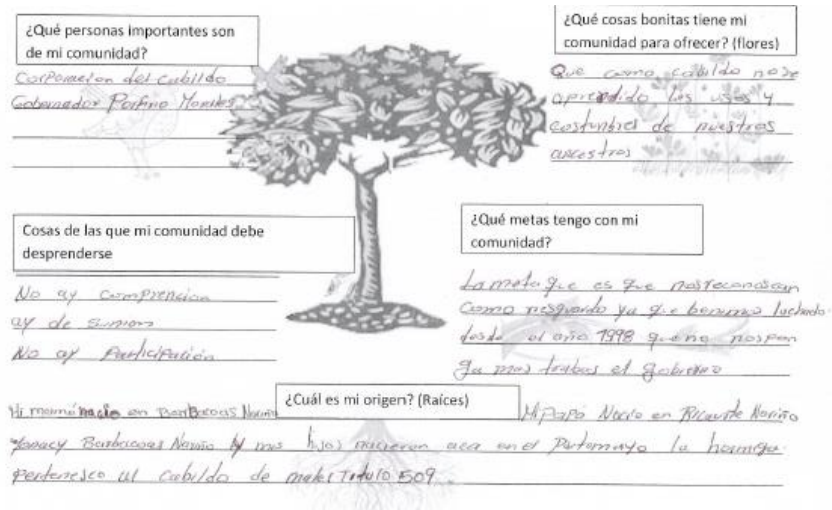 ¿Qué personas importantes son
de mi comunidad?
Corporacion del cabildo
Gobernador Porfino Morales
¿Qué cosas bonitas tiene mi
comunidad para ofrecer? (flores)
Que como cabildo nose
aprendido los usos y
costunbres de nuestros
ancestros
Cosas de las que mi comunidad debe
desprenderse
No ay comprencion
ay de sunion
No ay Participación
¿Qué metas tengo con mi
comunidad?
La meta que es que nos reconoscan
Como resguardo ya que benimos luchado
desde el año 1998 que no nos pon
ga mas trabas el gobierno
¿Cuál es mi origen? (Raíces)
Mi mamá nacio en Barbacoas Nariño
Mi Papá Nacio en Ricaurte Nariño
Yonacy Barbacoas Nariño y mis hijos nacieron aca en el Putomayo la hormiga
pertenesco al cabildo de males titulo 509